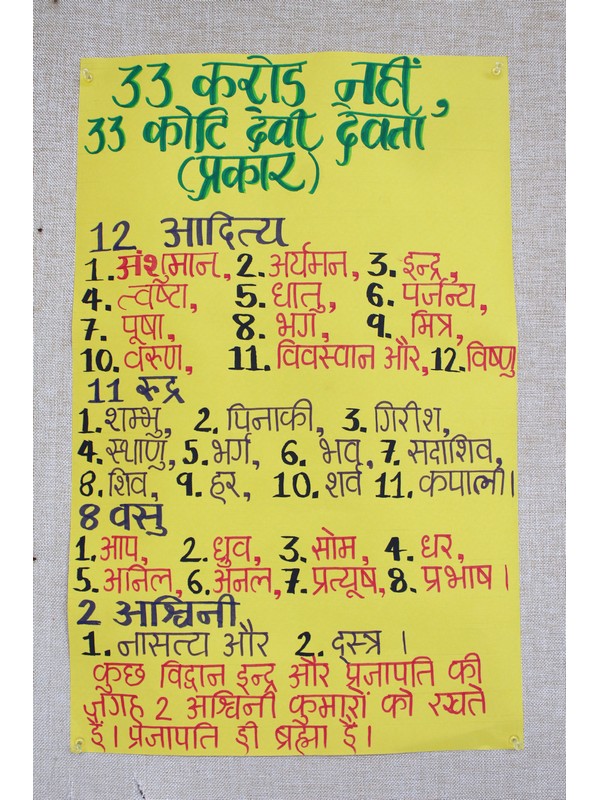 33 करोड नहीं,
33 कोटि देवी देवता
(प्रकार)
12 आदित्य
1. अंशुमान, 2. अर्यमन, 3. इन्द्र,
4. त्वष्टा, 5. धातु, 6. पर्जन्य,
7. पूषा, 8. भग, 9. मित्र,
10. वरुण, 11. विवस्वान और, 12. विष्णु
11 रुद्र
1. शम्भु, 2. पिनाकी, 3. गिरीश,
4. स्थाणु, 5. भर्ग, 6. भव, 7. सदाशिव,
8. शिव, 9. हर, 10. शर्व 11. कपाली।
8 वसु
1. आप, 2. ध्रुव, 3. सोम, 4. धर,
5. अनिल, 6. अनल, 7. प्रत्यूष, 8. प्रभाष।
2 अश्विनी
1. नासत्य और 2. दस्त्र।
कुछ विद्वान इन्द्र और प्रजापति की
जगह 2 अश्विनी कुमारों को रखते
हैं। प्रजापति ही ब्रह्मा हैं।